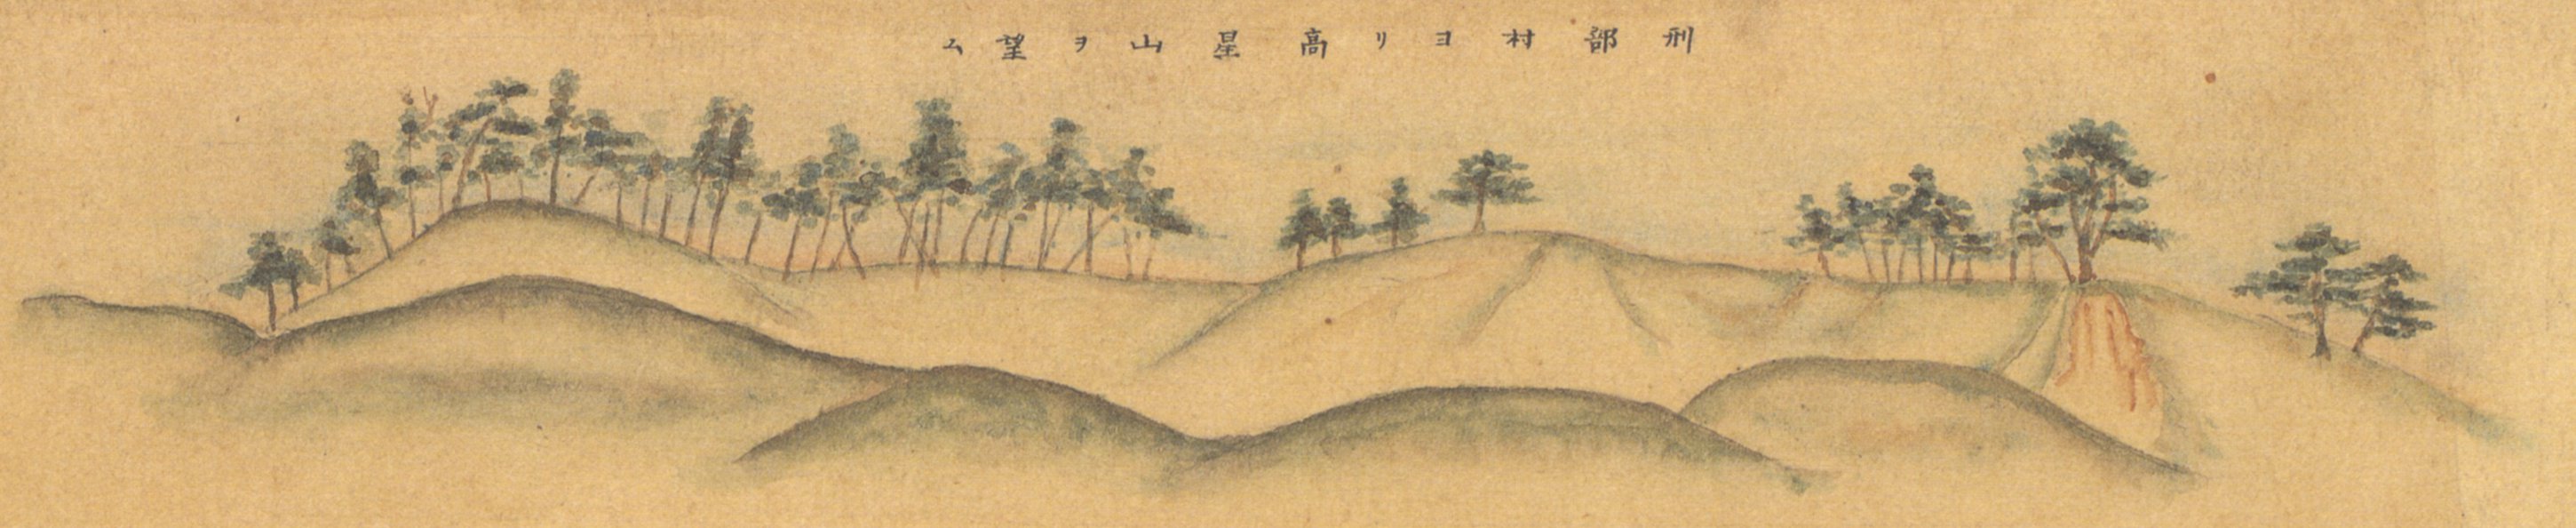 刑部村ヨリ高星山ヲ望ム